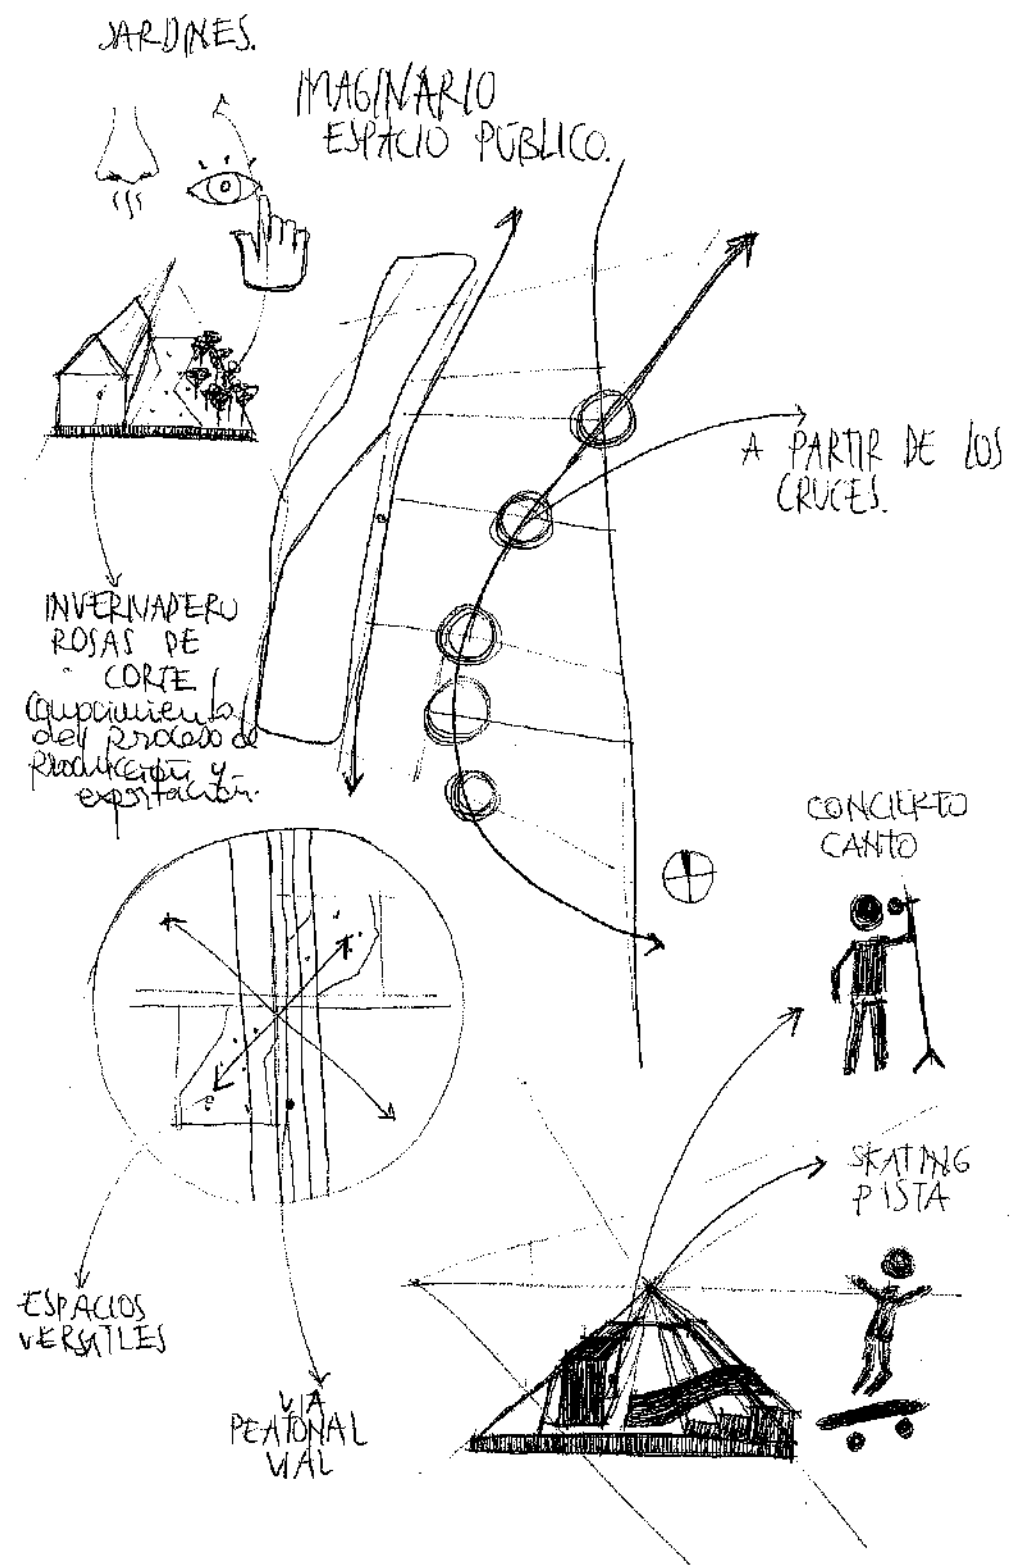 JARDINES.
IMAGINARIO
ESPACIO PÚBLICO.
A PARTIR DE LOS
CRUCES.
INVERNADERO
ROSAS DE
CORTE /
Conocimiento
del proceso de
producción y
exportación.
CONCIERTO
CANTO
SKATING
PISTA
ESPACIOS
VERSATILES
VIA
PEATONAL
VIAL